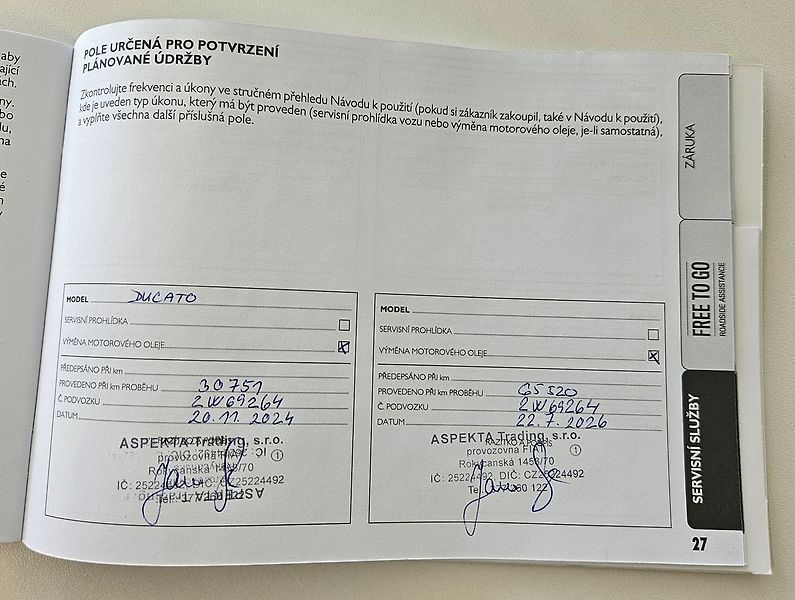 aby
ající
ích.
ny.
bo
du,
na
e
é
POLE URČENÁ PRO POTVRZENÍ
PLÁNOVANÉ ÚDRŽBY
Zkontrolujte frekvenci a úkony ve stručném přehledu Návodu k použití (pokud si zákazník zakoupil, také v Návodu k použití),
kde je uveden typ úkonu, který má být proveden (servisní prohlídka vozu nebo výměna motorového oleje, je-li samostatná),
a vyplňte všechna další příslušná pole.
MODEL DUCATO
SERVISNÍ PROHLÍDKA
VÝMĚNA MOTOROVÉHO OLEJE
PŘEDEPSÁNO PŘI km
PROVEDENO PŘI km PROBĚHU 30751
Č. PODVOZKU 2W69264
DATUM 20.11.2024
ASPEKTA Trading, s.r.o.
provozovna FIAT
Rokycanská 1458/70
IČ: 25224492 DIČ: CZ25224492
MODEL
SERVISNÍ PROHLÍDKA
VÝMĚNA MOTOROVÉHO OLEJE
PŘEDEPSÁNO PŘI km
PROVEDENO PŘI km PROBĚHU 65520
Č. PODVOZKU 2W69264
DATUM 22.7.2026
ASPEKTA Trading, s.r.o.
RAZÍTKO A PODPIS
provozovna FIAT 1
Rokycanská 1458/70
IČ: 25224492 DIČ: CZ25224492
ZÁRUKA
FREE TO GO
ROADSIDE ASSISTANCE
SERVISNÍ SLUŽBY
27